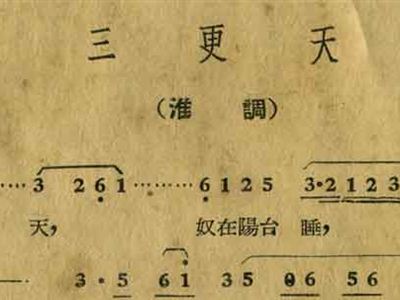 三更天
(淮調)
……3 2 6 1……6 1 2 5 3·2 1 2 3
天， 奴在陽台睡，
3·5 6 1 3 5 0 6 5 6